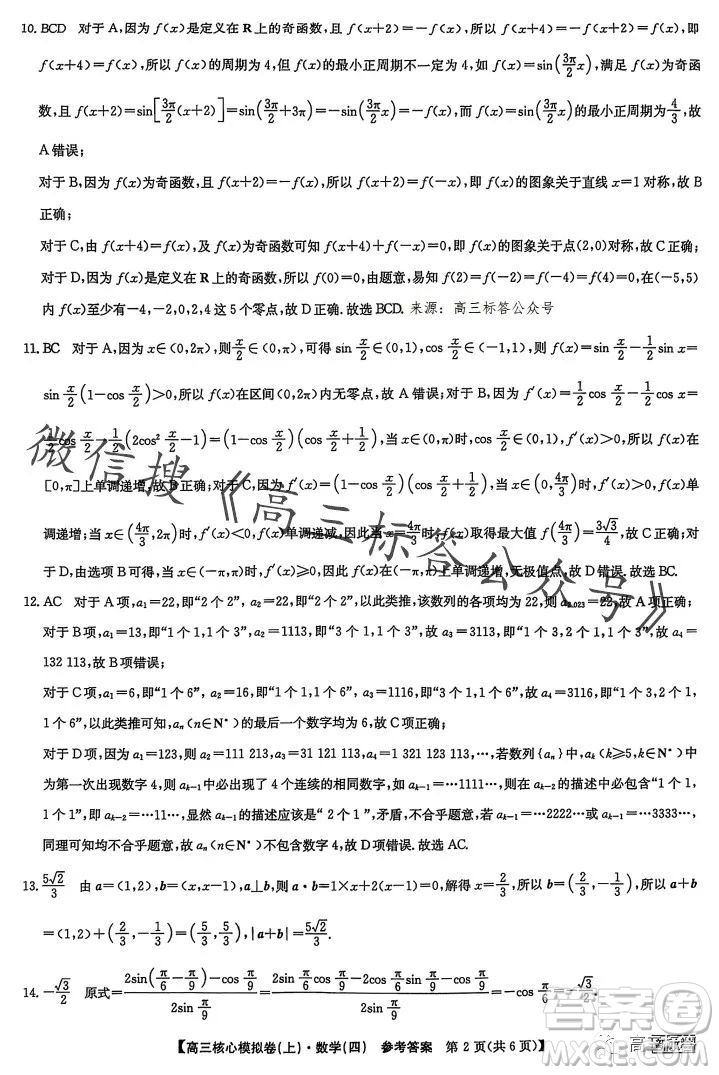 10. BCD 对于 A,因为 f(x)是定义在 R 上的奇函数,且 f(x+2)=-f(x),所以 f(x+4)=-f(x+2)=f(x),即
f(x+4)=f(x),所以 f(x)的周期为 4,但 f(x)的最小正周期不一定为 4,如 f(x)=sin(3π/2 x),满足 f(x)为奇函
数,且 f(x+2)=sin[3π/2(x+2)]=sin(3π/2 x+3π)=-sin(3π/2 x)=-f(x),而 f(x)=sin(3π/2 x)的最小正周期为 4/3,故
A 错误;
对于 B,因为 f(x)为奇函数,且 f(x+2)=-f(x),所以 f(x+2)=-f(x)=f(-x),即 f(x)的图象关于直线 x=1 对称,故 B
正确;
对于 C,由 f(x+4)=f(x),及 f(x)为奇函数可知 f(x+4)+f(-x)=0,即 f(x)的图象关于点(2,0)对称,故 C 正确;
对于 D,因为 f(x)是定义在 R 上的奇函数,所以 f(0)=0,由题意,易知 f(-4)=f(-2)=f(2)=f(4)=0,在(-5,5)
内 f(x)至少有-4,-2,0,2,4 这 5 个零点,故 D 正确.故选 BCD. 来源:高三标答公众号
11. BC 对于 A,因为 x∈(0,2π),则 x/2∈(0,π),可得 sin x/2>0,cos x/2∈(-1,1),所以 f(x)=sin x/2-1/2 sin x=
sin x/2(1-cos x/2)>0,所以 f(x)在区间(0,2π)内无零点,故 A 错误;对于 B,因为 f′(x)=1/2 cos x/2-1/2 cos x=
1/2 cos x/2-1/2(2cos² x/2-1)=(1-cos x/2)(cos x/2+1/2),当 x∈(0,π)时,cos x/2>0,f′(x)>0,所以 f(x)在
[0,π]上单调递增,故 B 正确;对于 C,因为 f′(x)=(1-cos x/2)(cos x/2+1/2),当 x∈(0,4π/3)时,f′(x)>0,f(x)单
调递增;当 x∈(4π/3,2π)时,f′(x)<0,f(x)单调递减,因此当 x=4π/3 时,f(x)取得最大值 f(4π/3)=3√3/4,故 C 正确;对
于 D,由选项 B 可知,f(x)在(0,π)上单调递增,因此 f(x)在(0,π)内无极值点,故 D 错误.故选 BC.
12. AC 对于 A 项,a₁=22,即“2 个 2”,a₂=22,即“2 个 2”,a₃=22,以此类推,该数列的各项均为 22,则 a₂ ₀₂₃=22,故 A 项正确;
对于 B 项,a₁=13,即“1 个 1,1 个 3”,a₂=1113,即“3 个 1,1 个 3”,故 a₃=3113,即“1 个 3,2 个 1,1 个 3”,故 a₄=
132 113,故 B 项错误;
对于 C 项,a₁=6,即“1 个 6”,a₂=16,即“1 个 1,1 个 6”,a₃=1116,即“3 个 1,1 个 6”,故 a₄=3116,即“1 个 3,2 个 1,
1 个 6”,以此类推可知,aₙ(n∈N*)的最后一个数字均为 6,故 C 项正确;
对于 D 项,因为 a₁=123,则 a₂=111 213,a₃=31 121 113,a₄=1 321 123 113,…,若数列{aₙ}中,aₖ(k≥5,k∈N*)
为第一次出现数字 4,则 aₖ₋₁中必出现了 4 个连续的相同数字,如 aₖ₋₁=…1111…,则在 aₖ₋₂的描述中必包含“1 个 1,
1 个 1”,故 aₖ₋₂=…11…,显然 aₖ₋₁的描述应该是“2 个 1”,矛盾,不合乎题意,若 aₖ₋₁=…2222…或 aₖ₋₁=…3333…,
同理可知均不合乎题意,故 aₙ(n∈N*)不包含数字 4,故 D 项错误.故选 AC.
13. 5√2/3 由 a=(1,2),b=(x,x-1),a⊥b,则 a·b=1×x+2(x-1)=0,解得 x=2/3,所以 b=(2/3,-1/3),所以 a+b
=(1,2)+(2/3,-1/3)=(5/3,5/3),|a+b|=5√2/3.
14. -√3/2 原式=(2sin(π/6-π/9)-cos π/9)/(2sin π/9)=(2sin π/6 cos π/9-2cos π/6 sin π/9-cos π/9)/(2sin π/9)=-cos π/6=-√3/2.
【高三核心模拟卷(上)·数学(四) 参考答案 第 2 页(共 6 页)】
微信搜《高三标答公众号》
答案圈